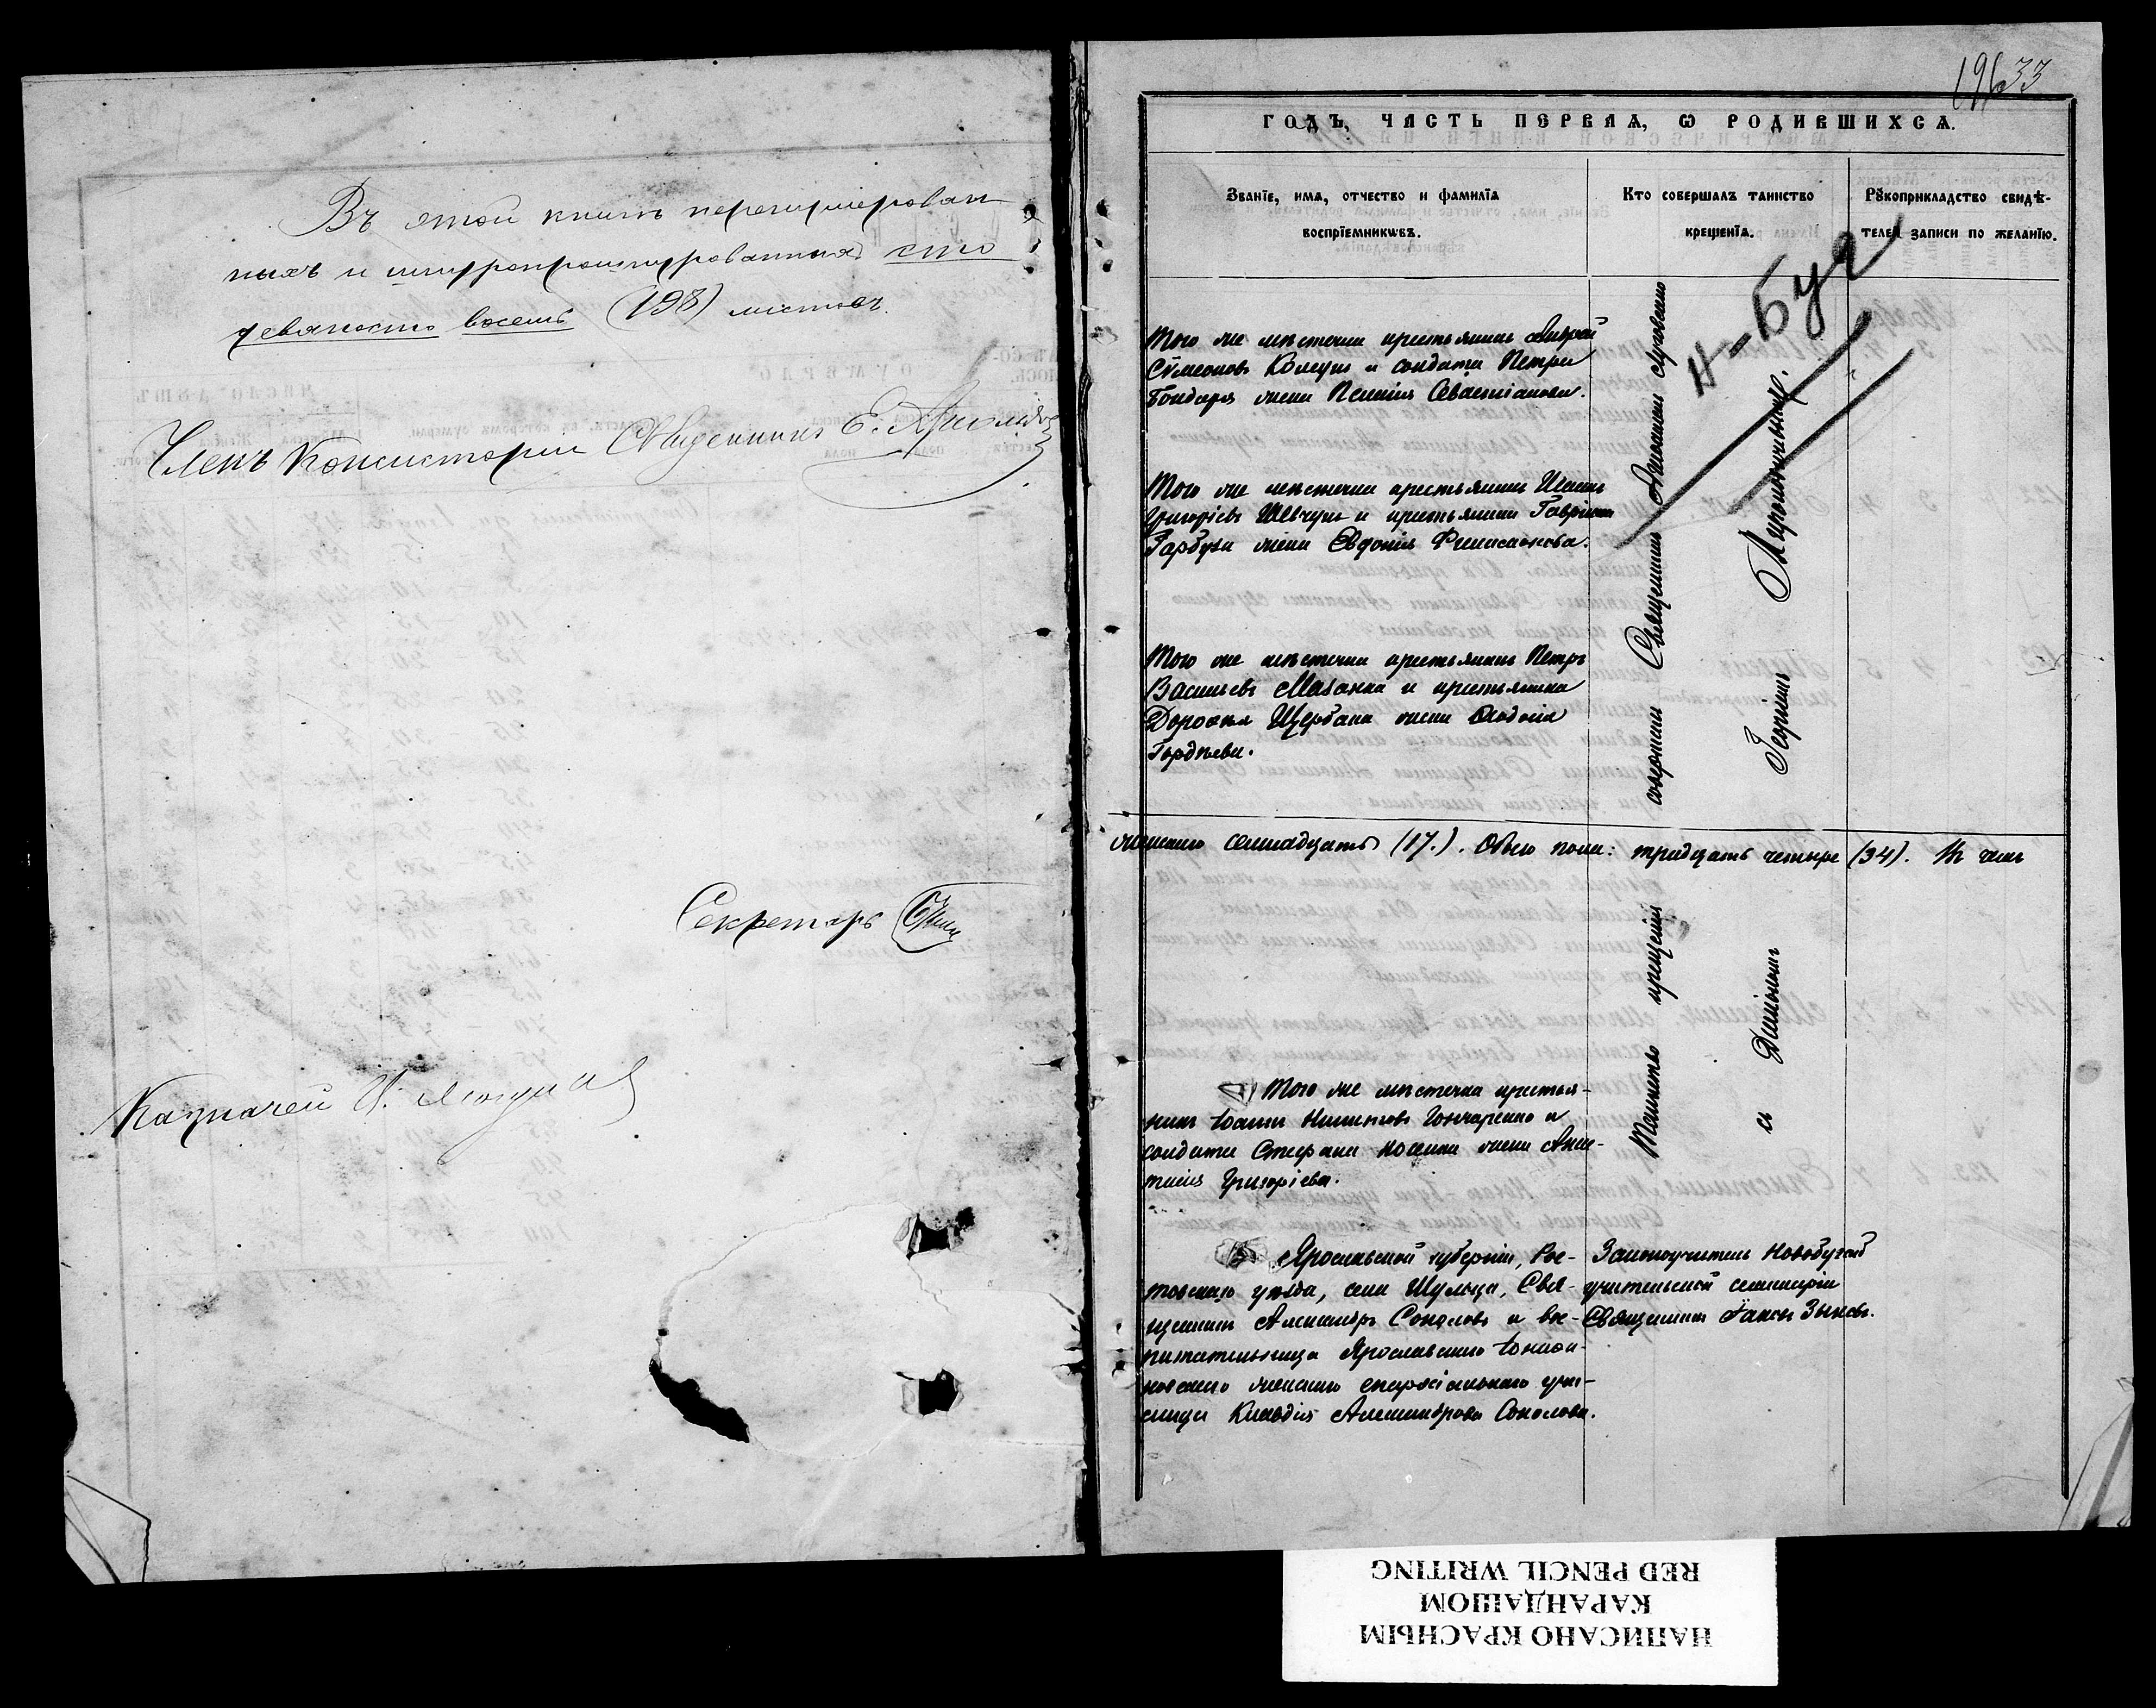 Въ этой книгѣ перенумерован
ныхъ и шнуропрошнурованныхъ сто
девяносто восемь (198) листовъ.
Членъ Консисторіи Священникъ Е.
Секретарь
Казначей
196 33
ГОДЪ, ЧАСТЬ ПЕРВАЯ, Ѡ РОДИВШИХСЯ.
Званїе, имя, отчество и фамилїа
воспрїемникѡвъ.
Кто совершалъ таинство
крещенїа.
Рꙋкоприкладство свидѣ-
телей записи по желанїю.
Н-Буг
Того же мѣстечка крестьянинъ Андрей
Сѵмеоновъ Коцупъ и солдата Петра
Бондаря жена Ксенія Севастіанова.
Того же мѣстечка крестьянинъ Іоаннъ
Григоріевъ Шевчукъ и крестьянина Гавріила
Гарбуза жена Евдокія Филимонова.
Того же мѣстечка крестьянинъ Петръ
Васильевъ Мазанка и крестьянина
Дорофея Щербана жена Ѳеодосія
Гордѣева.
Таинство крещенія совершали Священникъ Луговенко
съ Діакономъ Георгіемъ
женскаго семнадцать (17.). Обоего пола: тридцать четыре (34). Въ чемъ
Того же мѣстечка крестья-
нинъ Іоаннъ Никитовъ Гончаренко и
солдата Стефана жена Анас-
тасія Григоріева.
Ярославской губерніи, Рос-
товскаго уѣзда, села Шулеца, Свя-
щенникъ Александръ Соколовъ и вос-
питательница Ярославскаго Іонаѳа-
новскаго женскаго епархіальнаго учи-
лища Клавдія Александрова Соколова.
Законоучитель Новобугской
учительской семинаріи
Священникъ Іаковъ Зыковъ.
НАПИСАНО КРАСНЫМ
КАРАНДАШОМ
RED PENCIL WRITING